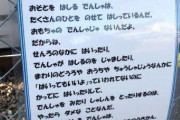 あそこを はしる でんしゃは、
たくさんのひとの のせて はしっているんだ、
おもちゃの でんしゃじゃ ないんだよ。
だからね、
せんろのなかに はいったり、
でんしゃが はしるのを じゃましたり、
まわりのどうろや おうちや ちゅうしゃじょうなんかに
「はいってもいいよ」っていわれてないのに
かってに はいったりして、
でんしゃを みたり しゃしんを とったりするのは、
やったら ダメな ことなんだ。